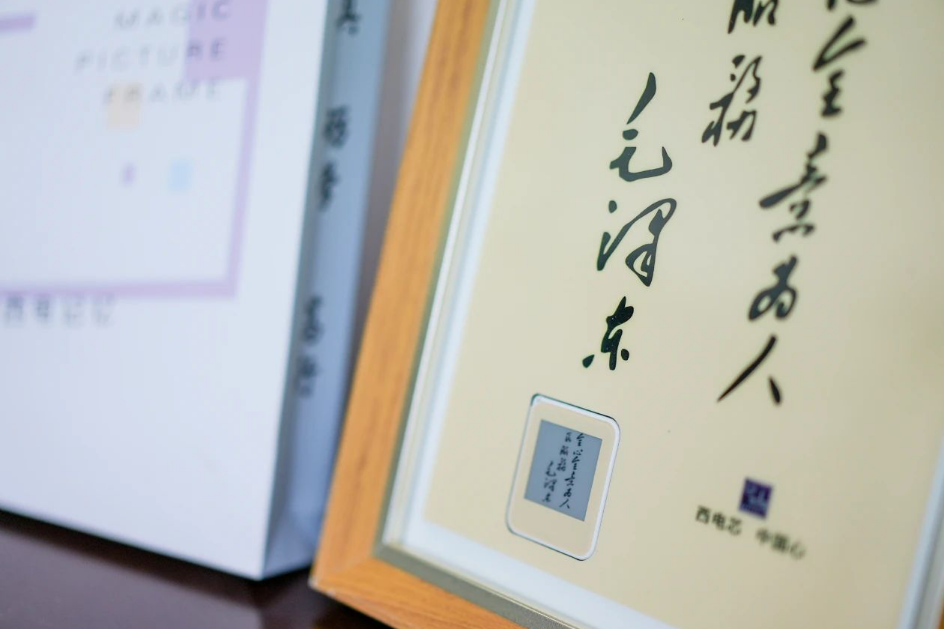 MAGIC
PICTURE
FRAME
西电芯
心全意为人
服务
毛泽东
全心全意为人
民服务
毛泽东
西电芯 中国心